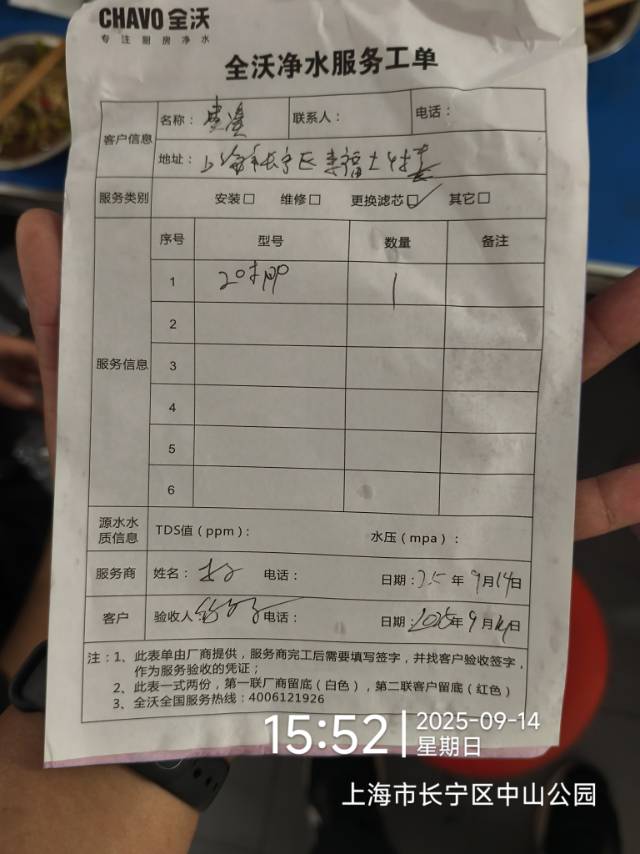 CHAVO 全沃
专注厨房净水
全沃净水服务工单
客户信息 名称： 联系人： 电话：
地址：上海市长宁区幸福
服务类别 安装□ 维修□ 更换滤芯☑ 其它□
服务信息 序号 型号 数量 备注
1 20寸 1
2
3
4
5
6
源水水质信息 TDS值（ppm）： 水压（mpa）：
服务商 姓名： 电话： 日期：25年9月14日
客户 验收人 电话： 日期：2025年9月14日
注：1、此表单由厂商提供，服务商完工后需要填写签字，并找客户验收签字，
作为服务验收的凭证；
2、此表一式两份，第一联厂商留底（白色），第二联客户留底（红色）
3、全沃全国服务热线：4006121926
15:52 2025-09-14
星期日
上海市长宁区中山公园